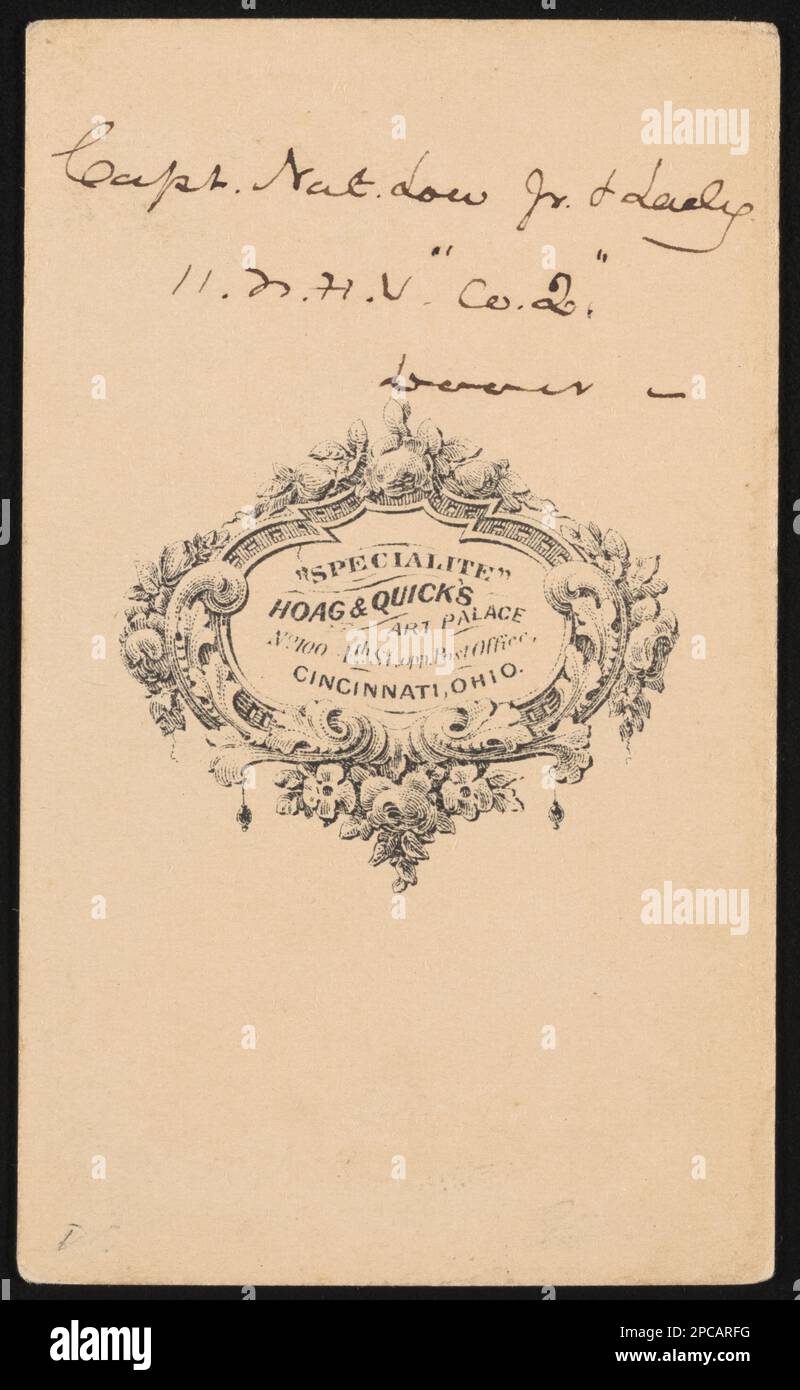 Capt. Nat. Low Jr. & Lady
11. N. H. V. "Co. 2."
Dover -
"SPECIALITE"
HOAG & QUICK'S
ART PALACE
No. 100 4th St., opp. Post Office,
CINCINNATI, OHIO.
alamy
Image ID: 2PCARFG
www.alamy.com